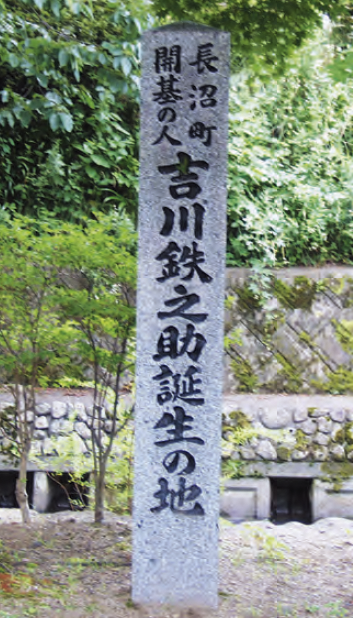 長沼町
開基の人
吉川鉄之助誕生の地